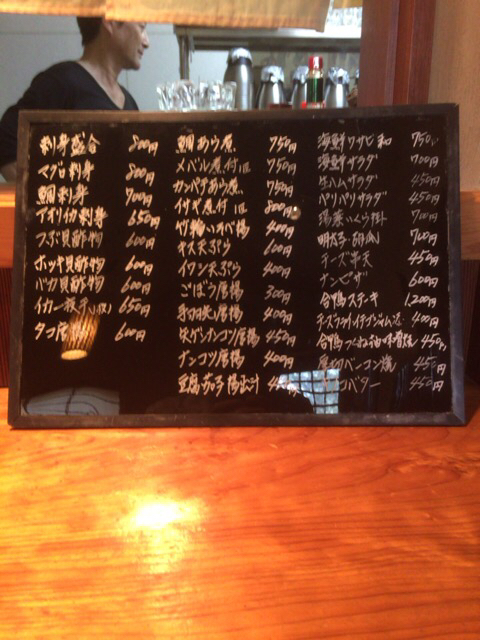 刺身盛合 800円
マグロ刺身 800円
鯛刺身 700円
アオリイカ刺身 650円
つぶ貝酢物 600円
ホッキ貝酢物 600円
バカ貝酢物 600円
イカ一夜干し 650円
タコ唐揚 600円
鯛あら煮 750円
メバル煮付 1尾 750円
カンパチあら煮 750円
イサキ煮付 1尾 800円
竹輪いそべ揚 400円
キス天ぷら 600円
イワシ天ぷら 400円
ごぼう唐揚 300円
手羽先唐揚 400円
ヤゲンナンコツ唐揚 450円
ナンコツ唐揚 400円
豆腐茄子揚出汁
海鮮ワサビ和 750円
海鮮サラダ 700円
生ハムサラダ 450円
パリパリサラダ 450円
湯葉いくら掛 700円
明太子 700円
チーズ串天 450円
ナンピザ 600円
合鴨ステーキ 1,200円
チーズフライイチゴジャム 400円
合鴨つくねねぎ油味噌焼 450円
厚切ベーコン焼 450円
バター 450円